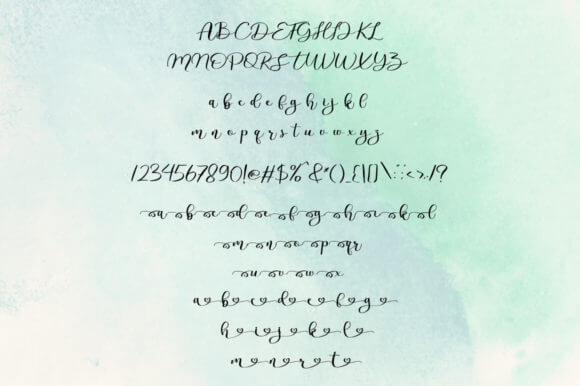 ABCDEFGHIJKL
MNOPQRSTUVWXYZ
a b c d e f g h i j k l
m n o p q r s t u v w x y z
1234567890!@#$%^&*()_{|[]\:;<>.,?
a b c d e f g h o k l
m n o p qr
u v w x
a b c d e f g
h i j k l
m n r t